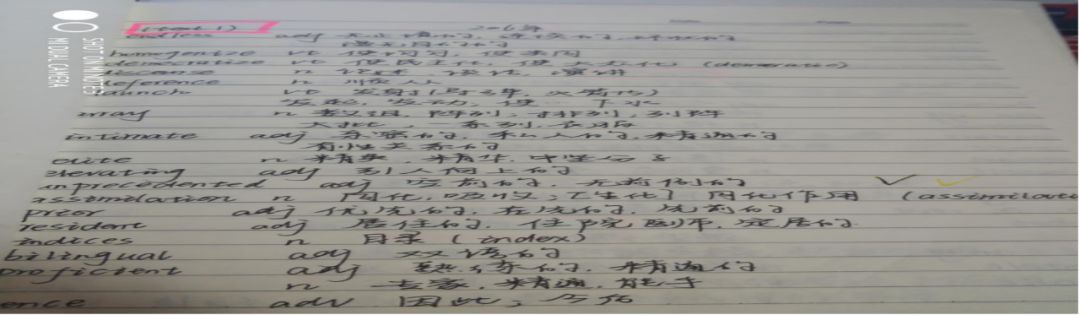 (text 1) 2006年
endless adj 无止境的, 连续的, 环状的
漫无目的的
homogenize vt 使均匀, 使类同
democratize vt 使民主化, 使大众化 (democratic)
discourse n 论述, 谈话, 演讲
deference n 顺从
launch vt 发射(导弹, 火箭等)
发起, 发动, 使…下水
array n 数组, 阵列, 排列, 列阵
大批, 一系列, 衣服
intimate adj 亲密的, 私人的, 精通的
有性关系的
elite n 精英, 精华, 中坚分子
elevating adj 引人向上的
unprecedented adj 空前的, 无前例的
assimilation n 同化, 吸收, [生化] 同化作用 (assimilate
prior adj 优先的, 在先的, 先前的
resident adj 居住的, 住院医师, 定居的
indices n 目录 (index)
bilingual adj 双语的
proficient adj 熟练的, 精通的
n 专家, 精通, 能手
ence adv 因此, 今后
SHOT ON MI NOTE3
MI DUAL CAMERA